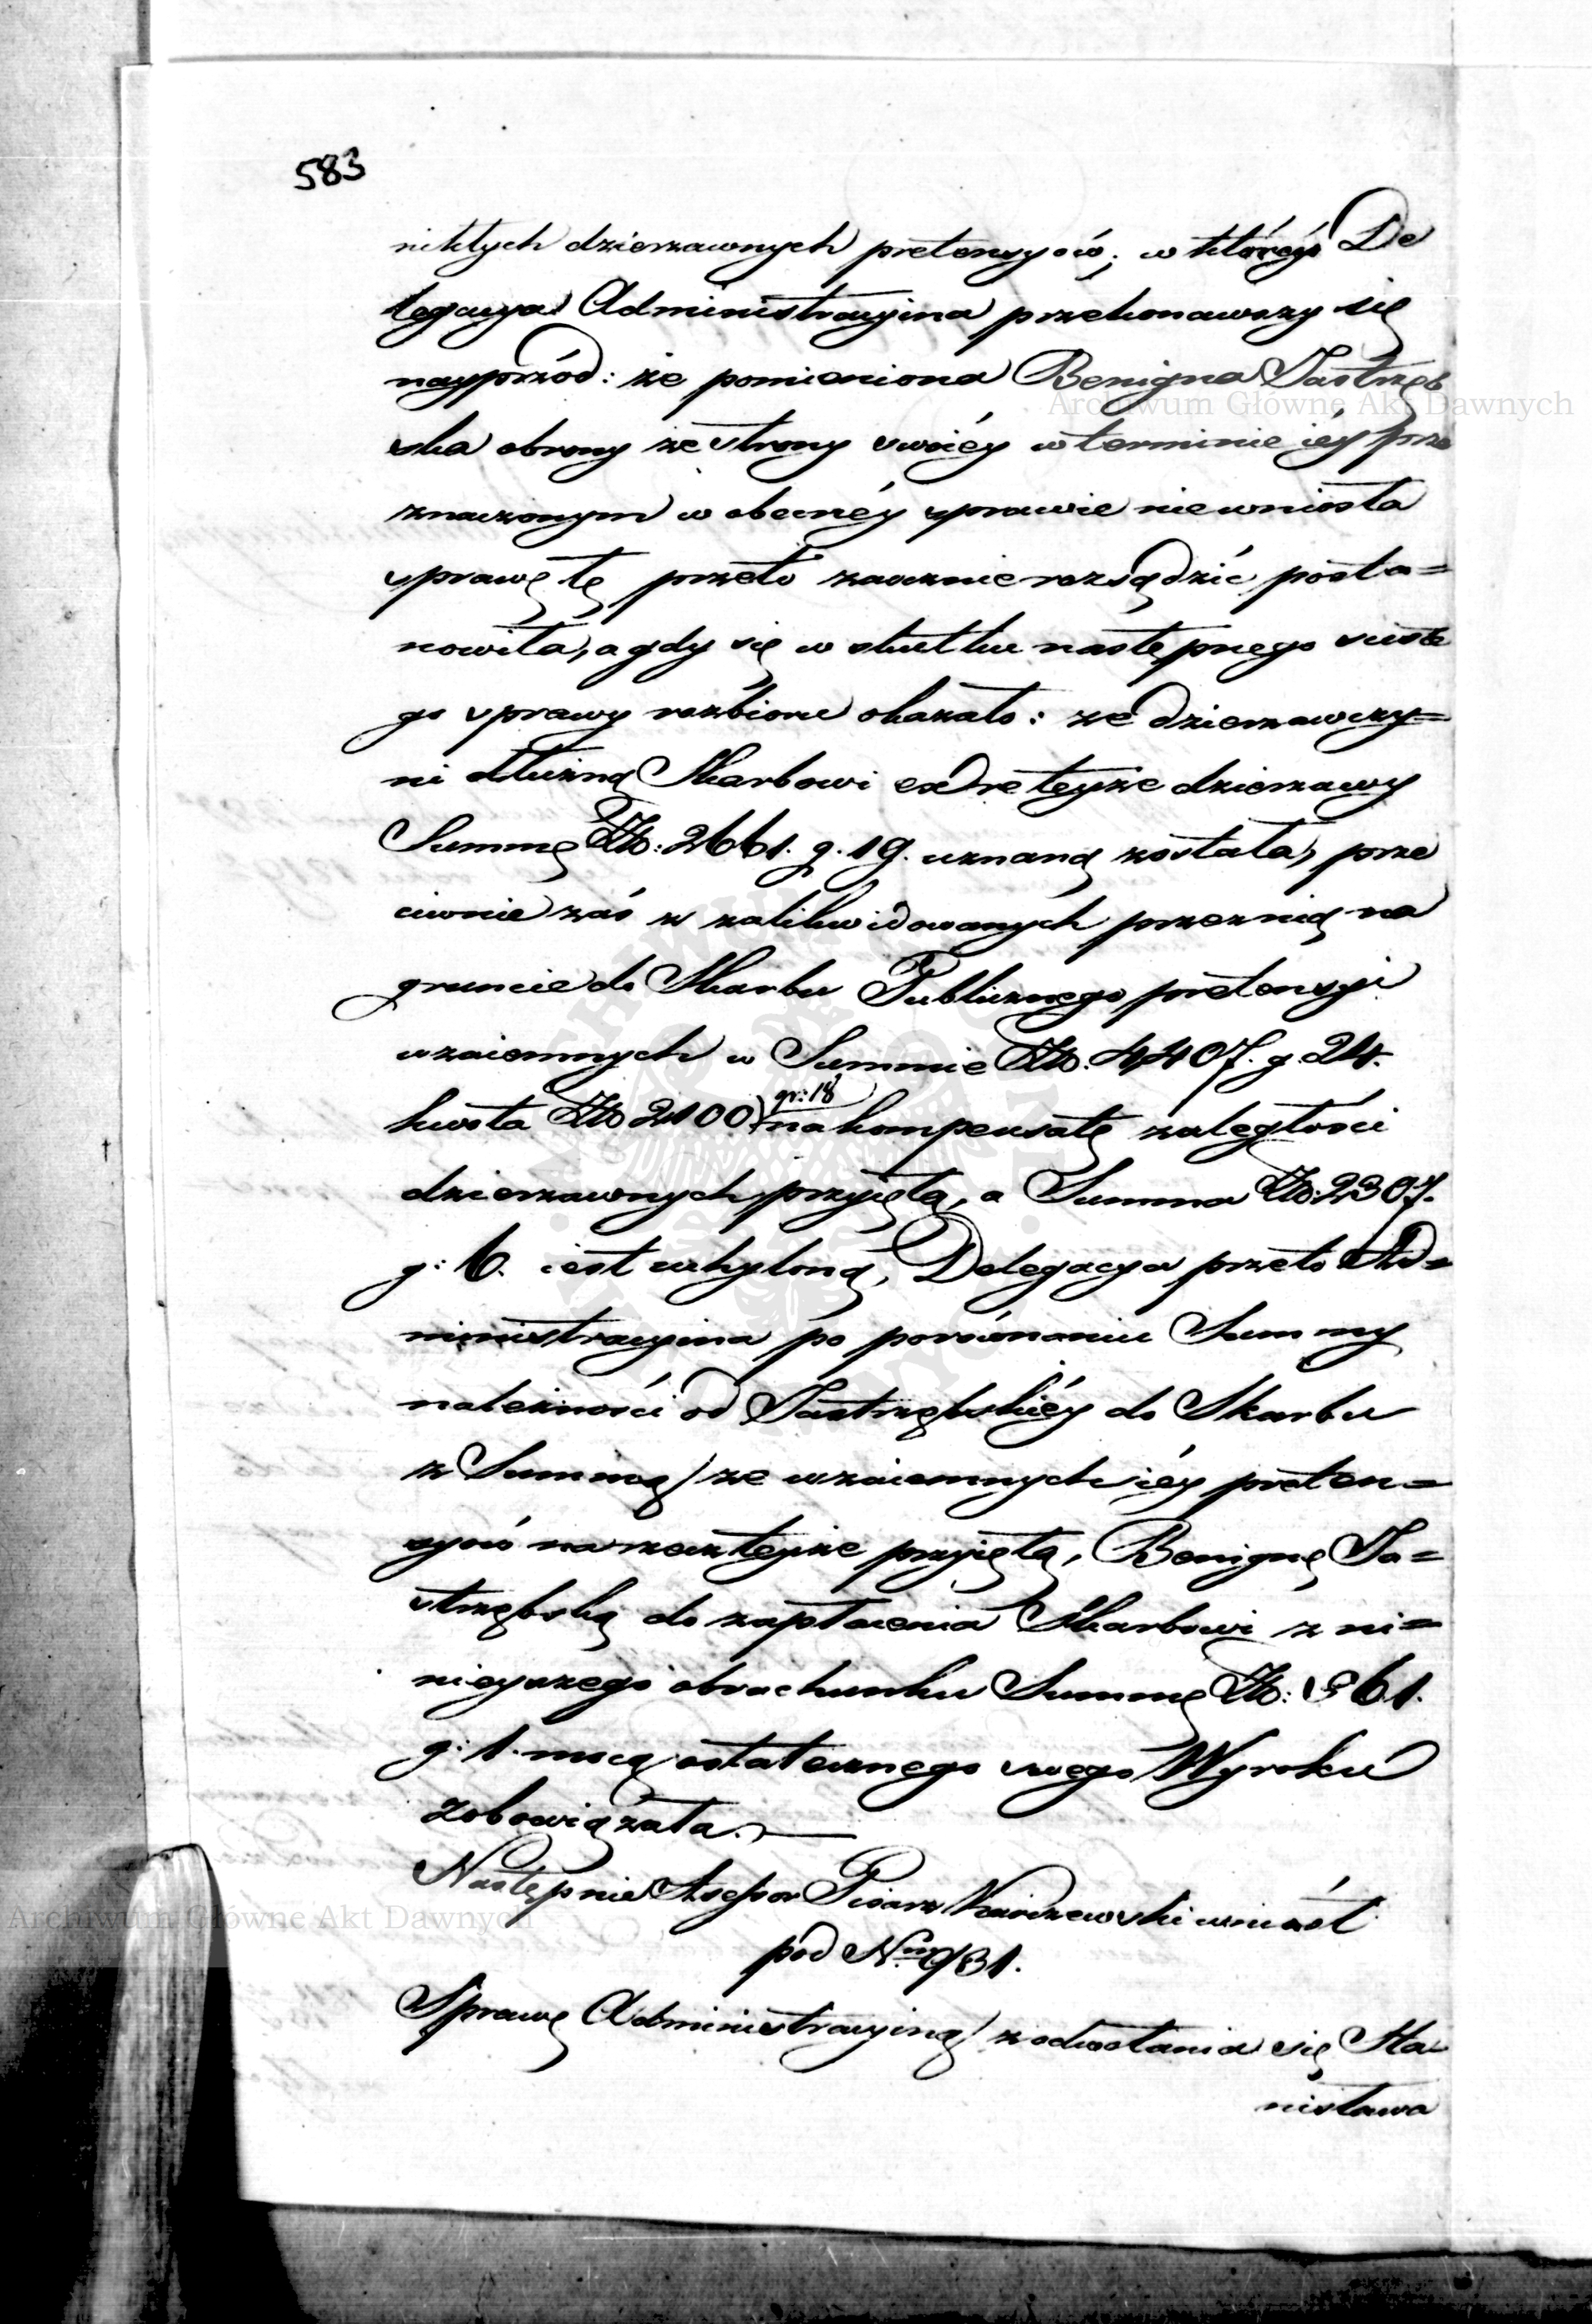 583
nikłych dzierzawnych pretensyiów; w któréy De
legacya Administracyina przekonawszy się
nayprzód: że pomieniona Benigna Jastrzęb
Archiwum Główne Akt Dawnych
ska obrony ze strony swoiéy w terminie iéy prze
znaczonym w obecnéy sprawie niewniosła
sprawę tę przeto zaocznie rozsądzić posta=
nowiła, a gdy się w skutku następnego
go sprawy rozbioru okazało: że dzierzawczy=
ni dłużną Skarbowi ex re teyże dzierzawy
Summę Złt: 2661. g. 19. uznaną została, prze
ciwnie zaś z zalikwidowanych przeznią na
gruncie do Skarbu Publicznego pretensyi
wzaiemnych w Summie Złt. 4407. g. 24.
kwota Złt 2100 gr: 18 na kompensatę zaległości
dzierzawnych przyiętą, a Summa Złt: 2307.
g: 6. iest uchyloną, Delegacya przeto Ad=
ministracyina po porównaniu Summy
należności od Jastrzębskiéy do Skarbu
z Summą ze wzaiemnych iéy preten=
syiów na rzecz teyże przyiętą, Benignę Ja=
strzębską do zapłacenia Skarbowi z ni=
nieyszego obrachunku Summę Złt: 561.
g: 1. mocą ostatecznego swego Wyroku
zobowiązała.—
Następnie Assessor Pisarz wniósł
pod Nrm 931.
Archiwum Główne Akt Dawnych
Sprawę Administracyiną z odwołania się Sta
nisława